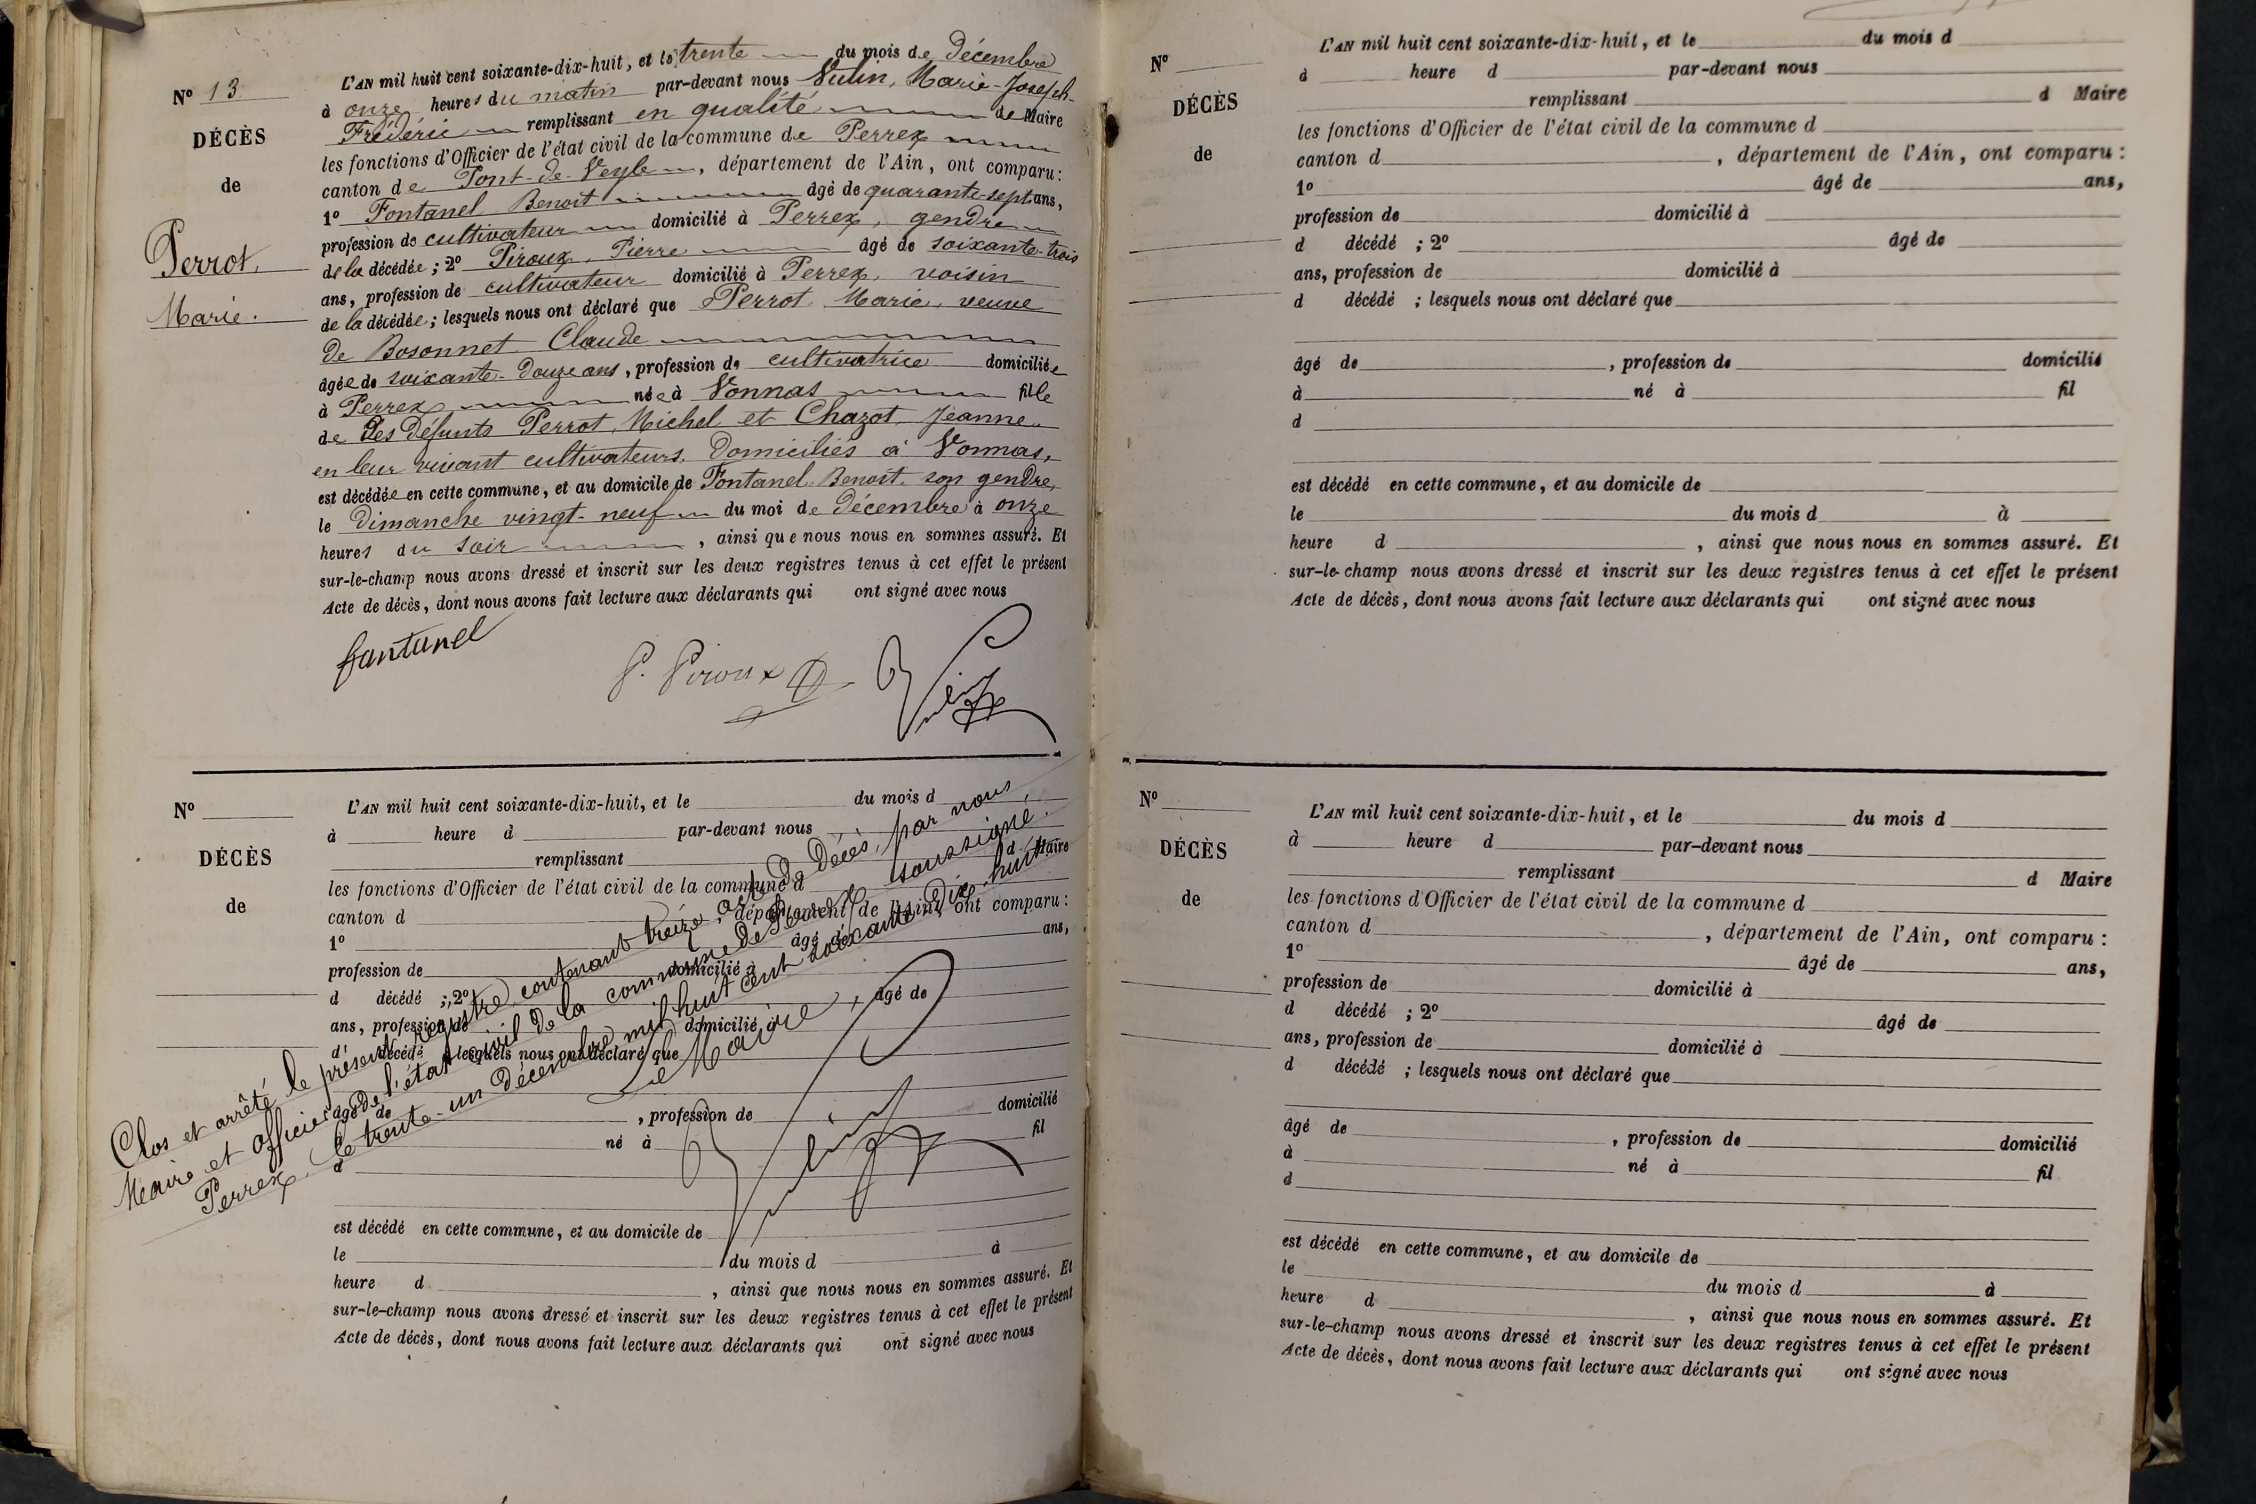 N° 13
DÉCÈS
de
Perrot,
Marie.
L'AN mil huit cent soixante-dix-huit, et le trente du mois de Décembre
à onze heures du matin par-devant nous Vulin, Marie-Joseph-
Frédéric remplissant en qualité de Maire
les fonctions d'Officier de l'état civil de la commune de Perrex
canton de Pont-de-Veyle, département de l'Ain, ont comparu :
1° Fontanel Benoit âgé de quarante-sept ans,
profession de cultivateur domicilié à Perrex, gendre
de la décédée ; 2° Piroux, Pierre âgé de soixante-trois
ans, profession de cultivateur domicilié à Perrex, voisin
de la décédée ; lesquels nous ont déclaré que Perrot Marie, veuve
de Bosonnet Claude
âgée de soixante-douze ans, profession de cultivatrice domiciliée
à Perrex née à Vonnas fille
de des défunts Perrot, Michel et Chazot, Jeanne,
en leur vivant cultivateurs, domiciliés à Vonnas,
est décédée en cette commune, et au domicile de Fontanel Benoit, son gendre,
le dimanche vingt-neuf du moi de Décembre à onze
heures du soir, ainsi que nous nous en sommes assuré. Et
sur-le-champ nous avons dressé et inscrit sur les deux registres tenus à cet effet le présent
Acte de décès, dont nous avons fait lecture aux déclarants qui ont signé avec nous
fantanel
P. Piroux
Vulin
N°
DÉCÈS
de
L'AN mil huit cent soixante-dix-huit, et le du mois d
à heure d par-devant nous
remplissant d Maire
les fonctions d'Officier de l'état civil de la commune d
canton d , département de l'Ain, ont comparu :
1° âgé de ans,
profession de domicilié à
d décédé ; 2° âgé de
ans, profession de domicilié à
d décédé ; lesquels nous ont déclaré que
âgé de , profession de domicilié
à né à fil
d
est décédé en cette commune, et au domicile de
le du mois d à
heure d , ainsi que nous nous en sommes assuré. Et
sur-le-champ nous avons dressé et inscrit sur les deux registres tenus à cet effet le présent
Acte de décès, dont nous avons fait lecture aux déclarants qui ont signé avec nous
Clos et arrêté le présent registre contenant treize actes de Décès, par nous,
Maire et officier de l'état civil de la commune de Perrex soussigné.
Perrex, le trente-un décembre mil huit cent soixante-dix-huit.
Le Maire,
Vulin
N°
DÉCÈS
de
L'AN mil huit cent soixante-dix-huit, et le du mois d
à heure d par-devant nous
remplissant d Maire
les fonctions d'Officier de l'état civil de la commune d
canton d , département de l'Ain, ont comparu :
1° âgé de ans,
profession de domicilié à
d décédé ; 2° âgé de
ans, profession de domicilié à
d décédé ; lesquels nous ont déclaré que
âgé de , profession de domicilié
à né à fil
d
est décédé en cette commune, et au domicile de
le du mois d à
heure d , ainsi que nous nous en sommes assuré. Et
sur-le-champ nous avons dressé et inscrit sur les deux registres tenus à cet effet le présent
Acte de décès, dont nous avons fait lecture aux déclarants qui ont signé avec nous
N°
DÉCÈS
de
L'AN mil huit cent soixante-dix-huit, et le du mois d
à heure d par-devant nous
remplissant d Maire
les fonctions d'Officier de l'état civil de la commune d
canton d , département de l'Ain, ont comparu :
1° âgé de ans,
profession de domicilié à
d décédé ; 2° âgé de
ans, profession de domicilié à
d décédé ; lesquels nous ont déclaré que
âgé de , profession de domicilié
à né à fil
d
est décédé en cette commune, et au domicile de
le du mois d à
heure d , ainsi que nous nous en sommes assuré. Et
sur-le-champ nous avons dressé et inscrit sur les deux registres tenus à cet effet le présent
Acte de décès, dont nous avons fait lecture aux déclarants qui ont signé avec nous